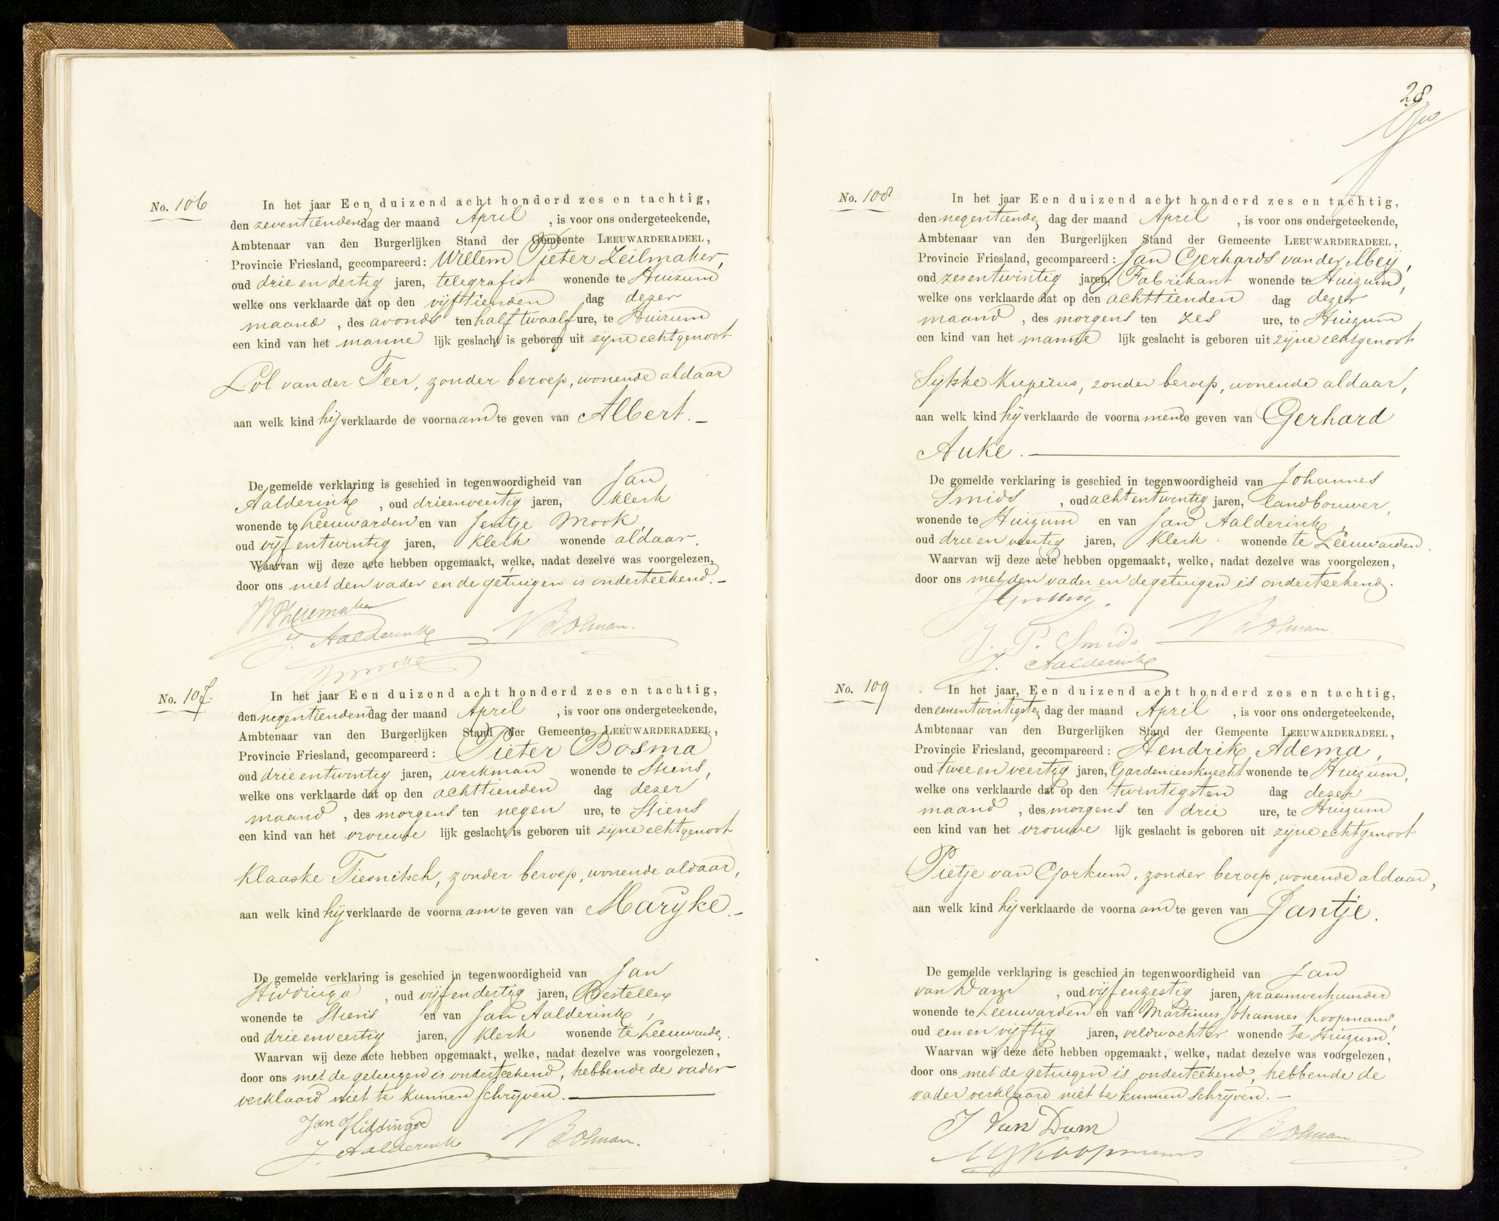 No. 106
In het jaar Een duizend acht honderd zes en tachtig,
den zeventienden dag der maand April , is voor ons ondergeteekende,
Ambtenaar van den Burgerlijken Stand der Gemeente LEEUWARDERADEEL,
Provincie Friesland, gecompareerd: Willem Pieter Zeilmaker,
oud drie en dertig jaren, telegrafist wonende te Huizum
welke ons verklaarde dat op den vijftienden dag dezer
maand , des avonds ten half twaalf ure, te Huizum
een kind van het manne lijk geslacht is geboren uit zijne echtgenoot
Lol van der Feer, zonder beroep, wonende aldaar
aan welk kind hij verklaarde de voornaam te geven van Albert. —
De gemelde verklaring is geschied in tegenwoordigheid van Jan
Aalderink , oud drieenveertig jaren, klerk
wonende te Leeuwarden en van Jentje Mook
oud vijfentwintig jaren, klerk wonende aldaar.
Waarvan wij deze acte hebben opgemaakt, welke, nadat dezelve was voorgelezen,
door ons met den vader en de getuigen is onderteekend. —
WPZeilmaker
J. Aalderink
N Bolman.
JMook
No. 107.
In het jaar Een duizend acht honderd zes en tachtig,
den negentienden dag der maand April , is voor ons ondergeteekende,
Ambtenaar van den Burgerlijken Stand der Gemeente LEEUWARDERADEEL,
Provincie Friesland, gecompareerd: Pieter Bosma
oud drie entwintig jaren, werkman wonende te Stiens,
welke ons verklaarde dat op den achttienden dag dezer
maand , des morgens ten negen ure, te Stiens
een kind van het vrouwe lijk geslacht is geboren uit zijne echtgenoot
Klaaske zonder beroep, wonende aldaar,
aan welk kind hij verklaarde de voornaam te geven van Maryke. —
De gemelde verklaring is geschied in tegenwoordigheid van Jan
Hiddinga , oud vijfendertig jaren, Besteller
wonende te Stiens en van Jan Aalderink,
oud drieenveertig jaren, klerk wonende te Leeuwarden.
Waarvan wij deze acte hebben opgemaakt, welke, nadat dezelve was voorgelezen,
door ons met de getuigen is onderteekend, hebbende de vader
verklaard niet te kunnen schrijven. —
Jan Hiddinga
J. Aalderink
N Bolman.
28
No. 108
In het jaar Een duizend acht honderd zes en tachtig,
den negentiende dag der maand April , is voor ons ondergeteekende,
Ambtenaar van den Burgerlijken Stand der Gemeente LEEUWARDERADEEL,
Provincie Friesland, gecompareerd: Jan Gerhards van der Meij,
oud zesentwintig jaren, Fabrikant wonende te Huizum,
welke ons verklaarde dat op den achttienden dag dezer
maand , des morgens ten zes ure, te Huizum
een kind van het manne lijk geslacht is geboren uit zijne echtgenoot
Sijkke Kuperus, zonder beroep, wonende aldaar,
aan welk kind hij verklaarde de voornamen te geven van Gerhard
Auke. —
De gemelde verklaring is geschied in tegenwoordigheid van Johannes
Smids , oud achtentwintig jaren, landbouwer,
wonende te Huizum en van Jan Aalderink,
oud drie en veertig jaren, klerk wonende te Leeuwarden.
Waarvan wij deze acte hebben opgemaakt, welke, nadat dezelve was voorgelezen,
door ons met den vader en de getuigen is onderteekend.
J. P. Smids
N Bolman
J. Aalderink
No. 109
In het jaar Een duizend acht honderd zes en tachtig,
den eenentwintigste dag der maand April , is voor ons ondergeteekende,
Ambtenaar van den Burgerlijken Stand der Gemeente LEEUWARDERADEEL,
Provincie Friesland, gecompareerd: Hendrik Adema,
oud twee en veertig jaren, Gardeniersknecht wonende te Huizum,
welke ons verklaarde dat op den twintigsten dag dezer
maand , des morgens ten drie ure, te Huizum
een kind van het vrouwe lijk geslacht is geboren uit zijne echtgenoot
Pietje van Gorkum, zonder beroep, wonende aldaar,
aan welk kind hij verklaarde de voornaam te geven van Jantje.
De gemelde verklaring is geschied in tegenwoordigheid van Jan
van Dam , oud vijfenzestig jaren, praamverhuurder
wonende te Leeuwarden en van Martinus Johannes Koopmans
oud een en vijftig jaren, veldwachter wonende te Huizum.
Waarvan wij deze acte hebben opgemaakt, welke, nadat dezelve was voorgelezen,
door ons met de getuigen is onderteekend, hebbende de
vader verklaard niet te kunnen schrijven. —
J Van Dam
N Bolman
MJKoopmans